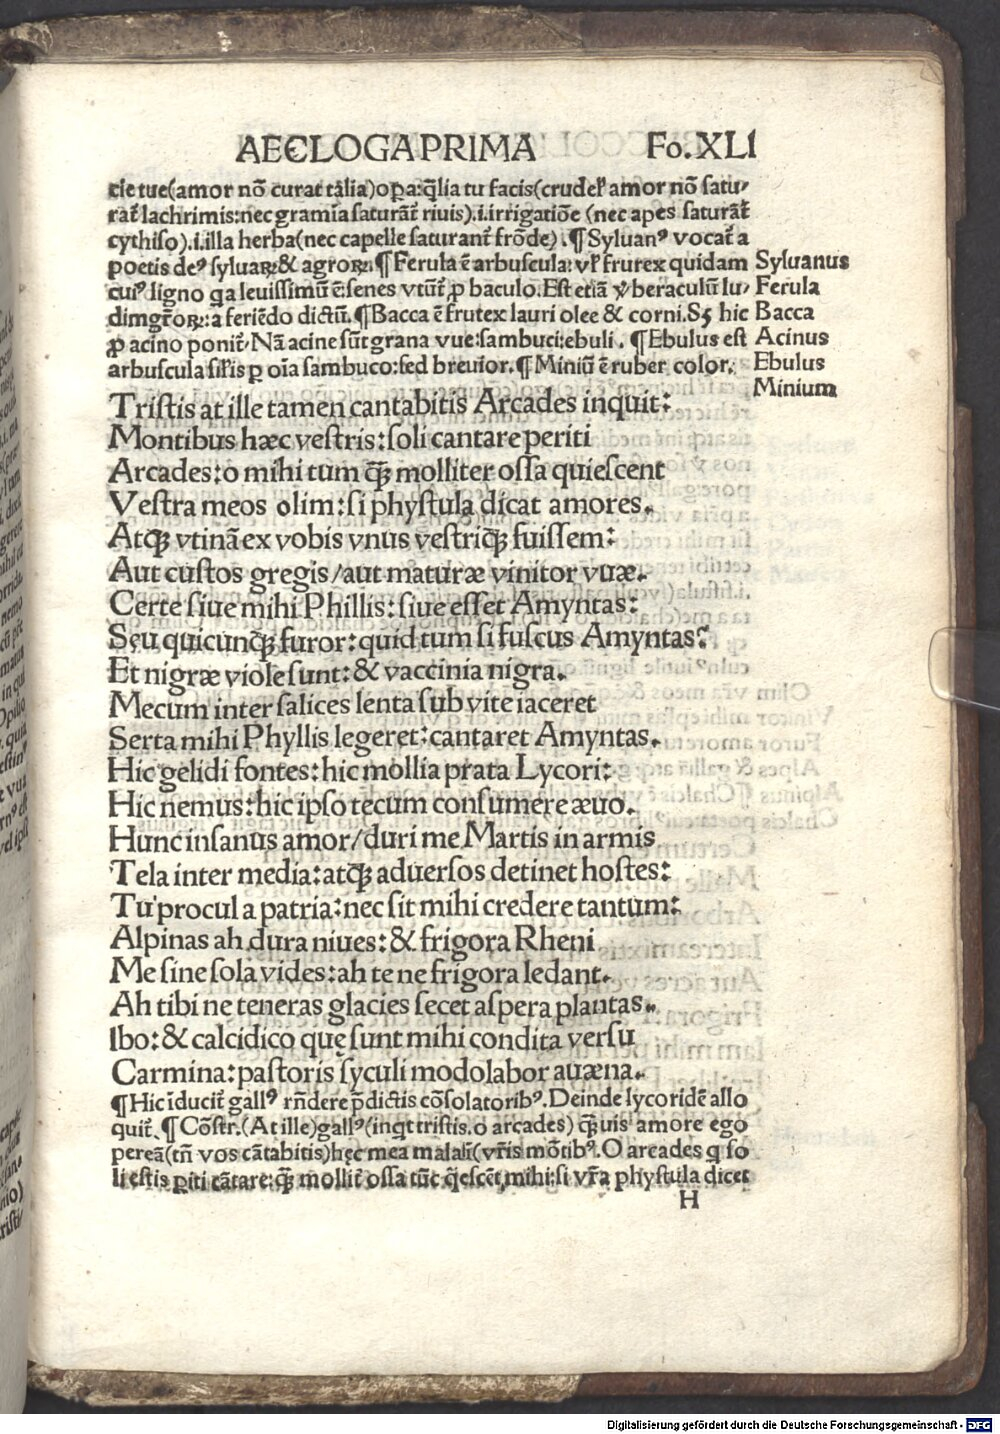 AECLOGA PRIMA Fo. XLI
cie tue(amor nõ curat talia)oꝑa:q̃lia tu facis(crudel' amor nõ satu-
rat̃ lachrimis:nec gramia saturãt̃ riuis).i.irrigatiõe (nec apes saturãt̃
cythiso).i.illa herba(nec capelle saturant̃ frõde).¶Syluanꝰ vocat̃ a
poetis deꝰ syluaꝝ:& agroꝝ.¶Ferula ẽ arbuscula: vl' frutex quidam Syluanus
cuiꝰ ligno qa leuissimũ ẽ:senes vtũt̃ ꝓ baculo. Est etiã ṽberaculũ lu- Ferula
dimgr̃oꝝ:a feriẽdo dictũ.¶Bacca ẽ frutex lauri olee & corni.Sꝫ hic Bacca
ꝓ acino ponit̃. Nã acine sũt grana vue:sambuci:ebuli. ¶Ebulus est Acinus
arbuscula sil'is ꝑ oĩa sambuco:sed breuior.¶Miniũ ẽ ruber color. Ebulus
Minium
Tristis at ille tamen cantabitis Arcades inquit:
Montibus hæc vestris:soli cantare periti
Arcades:o mihi tum q̃ꝫ molliter ossa quiescent
Vestra meos olim:si phystula dicat amores.
Atqꝫ vtinã ex vobis vnus vestriqꝫ fuissem:
Aut custos gregis/aut maturæ vinitor vuæ.
Certe siue mihi Phillis:siue esset Amyntas:
Seu quicunqꝫ furor:quid tum si fuscus Amyntas:
Et nigræ viole sunt:& vaccinia nigra.
Mecum inter salices lenta sub vite iaceret
Serta mihi Phyllis legeret:cantaret Amyntas.
Hic gelidi fontes:hic mollia prata Lycori:
Hic nemus:hic ipso tecum consumere æuo.
Hunc insanus amor/duri me Martis in armis
Tela inter media:atqꝫ aduersos detinet hostes:
Tu procul a patria:nec sit mihi credere tantum:
Alpinas ah dura niues:& frigora Rheni
Me sine sola vides:ah te ne frigora ledant.
Ah tibi ne teneras glacies secet aspera plantas.
Ibo:& calcidico quę sunt mihi condita versu
Carmina:pastoris syculi modolabor auæna.
¶Hic ĩducit̃ gallꝰ rñdere p̃dictis cõsolatoribꝰ. Deinde lycoridẽ allo
quit̃.¶Cõstr.(At ille)gallꝰ(inqt tristis.o arcades) q̃ꝫuis amore ego
pereã(tñ vos cãtabitis)hęc mea mala ĩ(vr̃is mõtibꝰ. O arcades q so
li estis ꝑiti cãtare:q̃ꝫ mollit̃ ossa tũc q̃escẽt mihi:si vr̃a phystula dicet
H
Digitalisierung gefördert durch die Deutsche Forschungsgemeinschaft - DFG